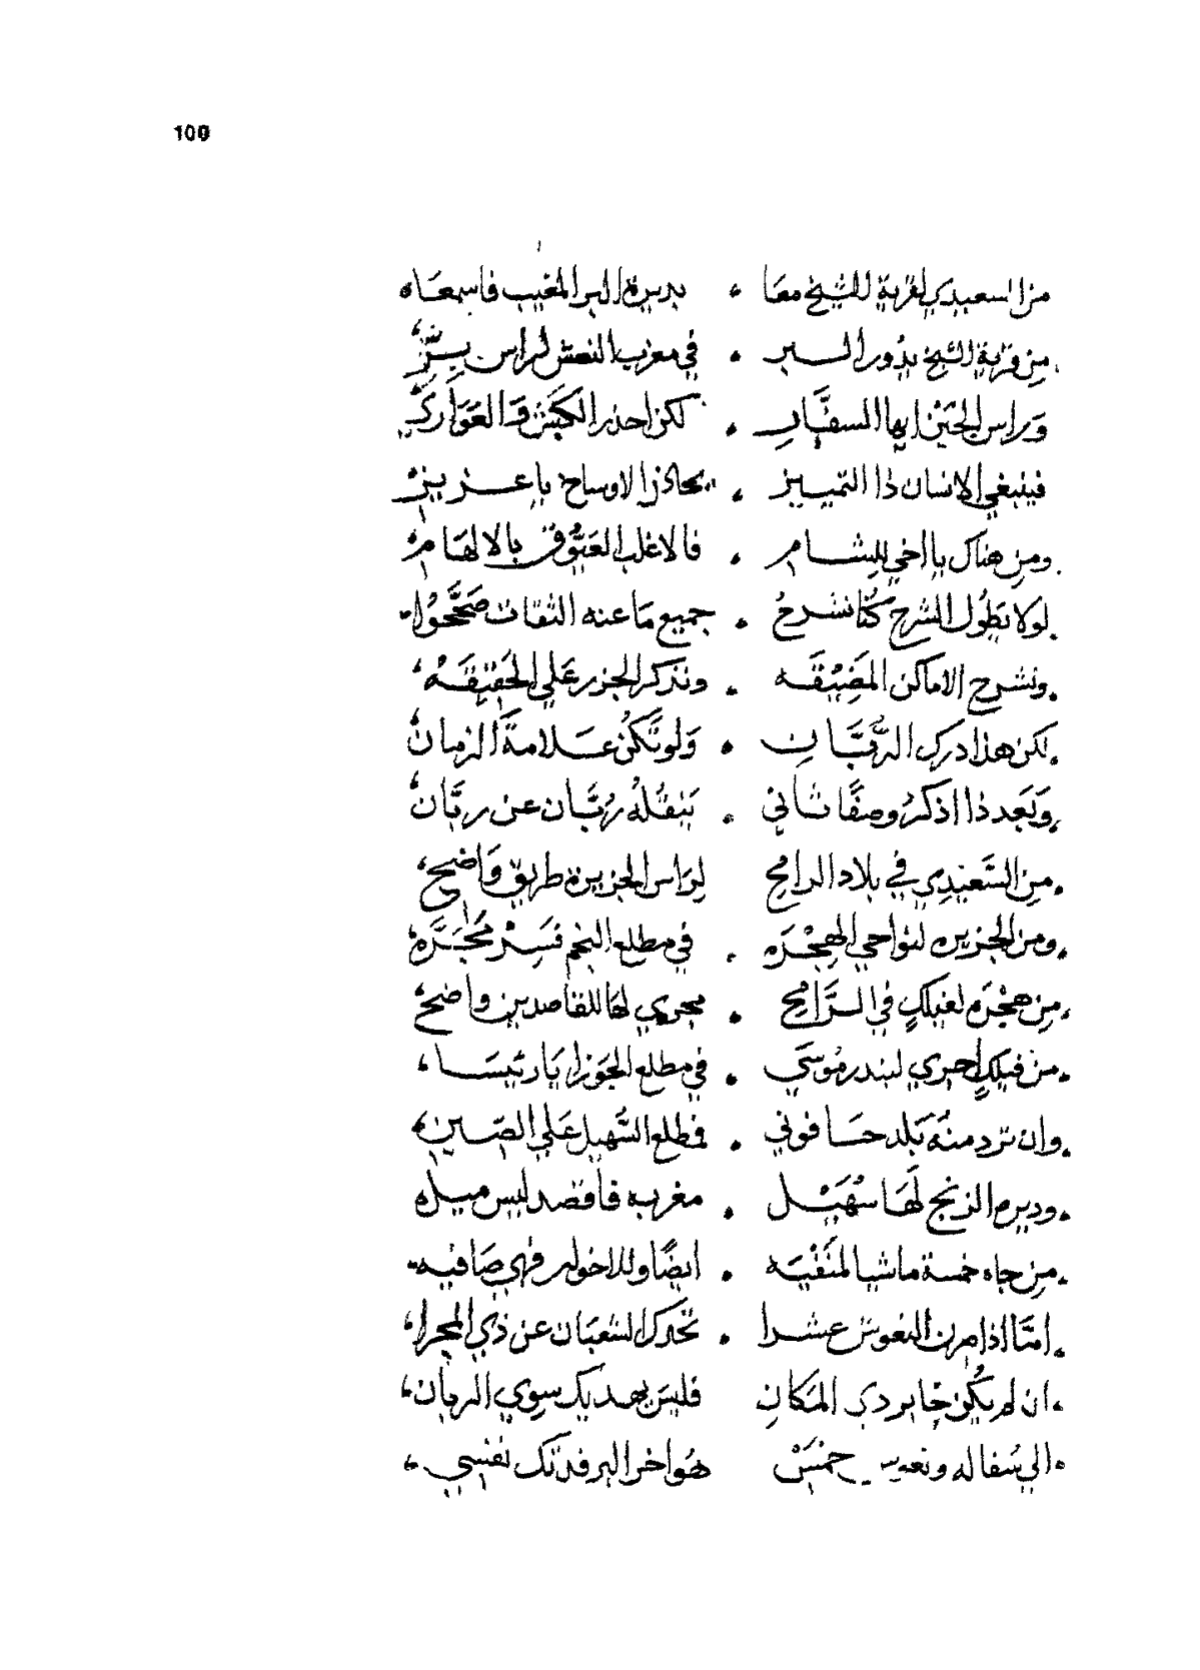 100
من السعيدي لقرية الشيخ معا ، بديرة البر المغيب فاسمعاه
من قرية الشيخ يدور السير ، في مغرب النعش لراس
وراس الجنين ايها السفَّار ، لكن احذر الكبش والعوارك
فينبغي الانسان ذا التمييز ، يحاذر الاوساخ يا عزيز
ومن هناك يا اخي للشام ، فالاغلب العَيُّوق بالالهام
لولا يطول الشرح كُنَّا نشرحُ ، جميع مَا عنه الثقات صَحَّحُوا
ونشرح الاماكن المَضِيْقَه ، ونذكر الجزر عَلي الحَقِيقَهْ
لكن هذا درك الرُّبَّان ، وَلو تَكُنْ علامةَ الزمانْ
وَبَعد ذا اذكرُ وصفًا ثاني ، يَنقُلهُ رُبَّان عن ربَّانْ
من السَّعِيْدِي في بلاد الرامح لرَاس الجزيرة طريق وَاضح
ومن الجزيره لنواحي الهِجْرَه ، في مطلع النجم فَسِرْ مُجَرَّه
من هجْرَه لفيلكٍ في الرَّامح ، مجري لها للقاصدين واضح
من فيلكٍ اجري لبندر مُوسَي ، في مطلع الجَوْزا يَا رئيسَا
وان ترد منه بَلد حَافوني ، فطلع السُّهيل عَلي
وديرة الزنج لَها سُهَيْل ، مغربه فاقصد ليس ميله
من جاه خمسة ماشيا المنفيَه ، ايضًا وللاخوار فهي صَافيه
امَّا اذا صرن النعوش عشرا ، تحدرك الشعبَان عن ذي المجرا
ان لم يكُن خابر دي المكَانِ فليسَ يهديك سوي الربان
الي سُفاله ونعوش خمْسَ هُو اخر البر فدتك نفسي